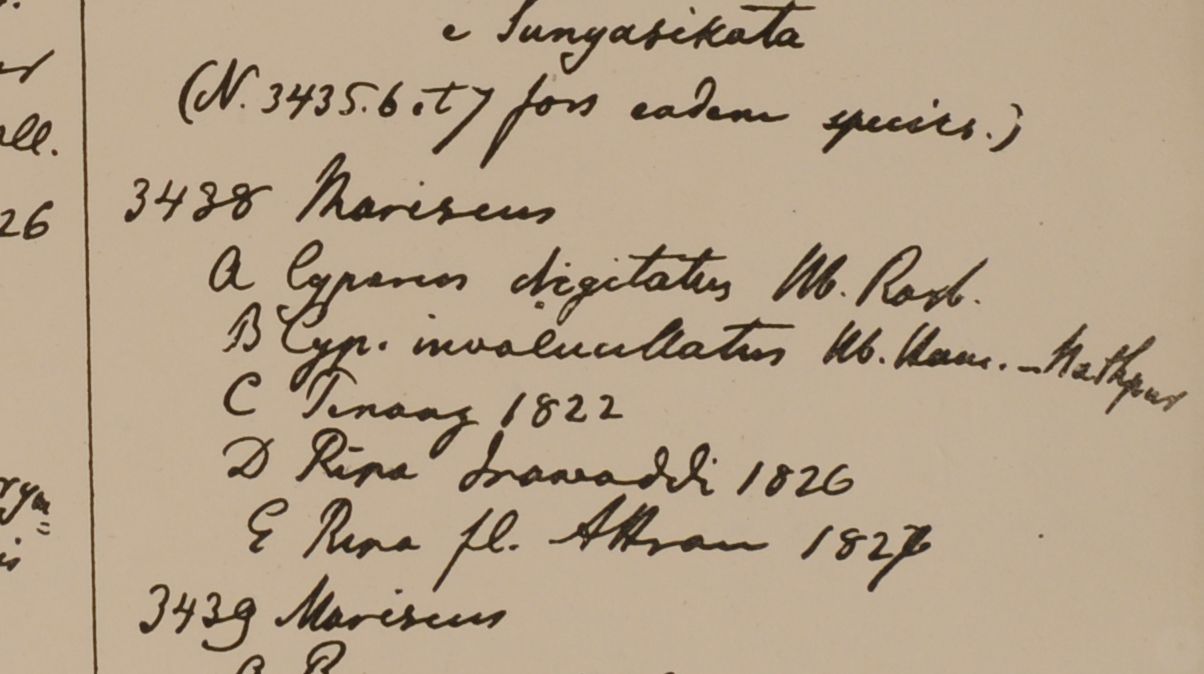 ll.
26
e Sunyasikata
(N. 3435.6 et 7 fors eadem species.)
3438 Mariscus
A Cyperus digitatus Hb. Roxb.
B Cyp. involucellatus Hb. Ham. - Nathpur
C Penang 1822
D Ripa Irawaddi 1826
E Ripa fl. Attran 1827
3439 Mariscus